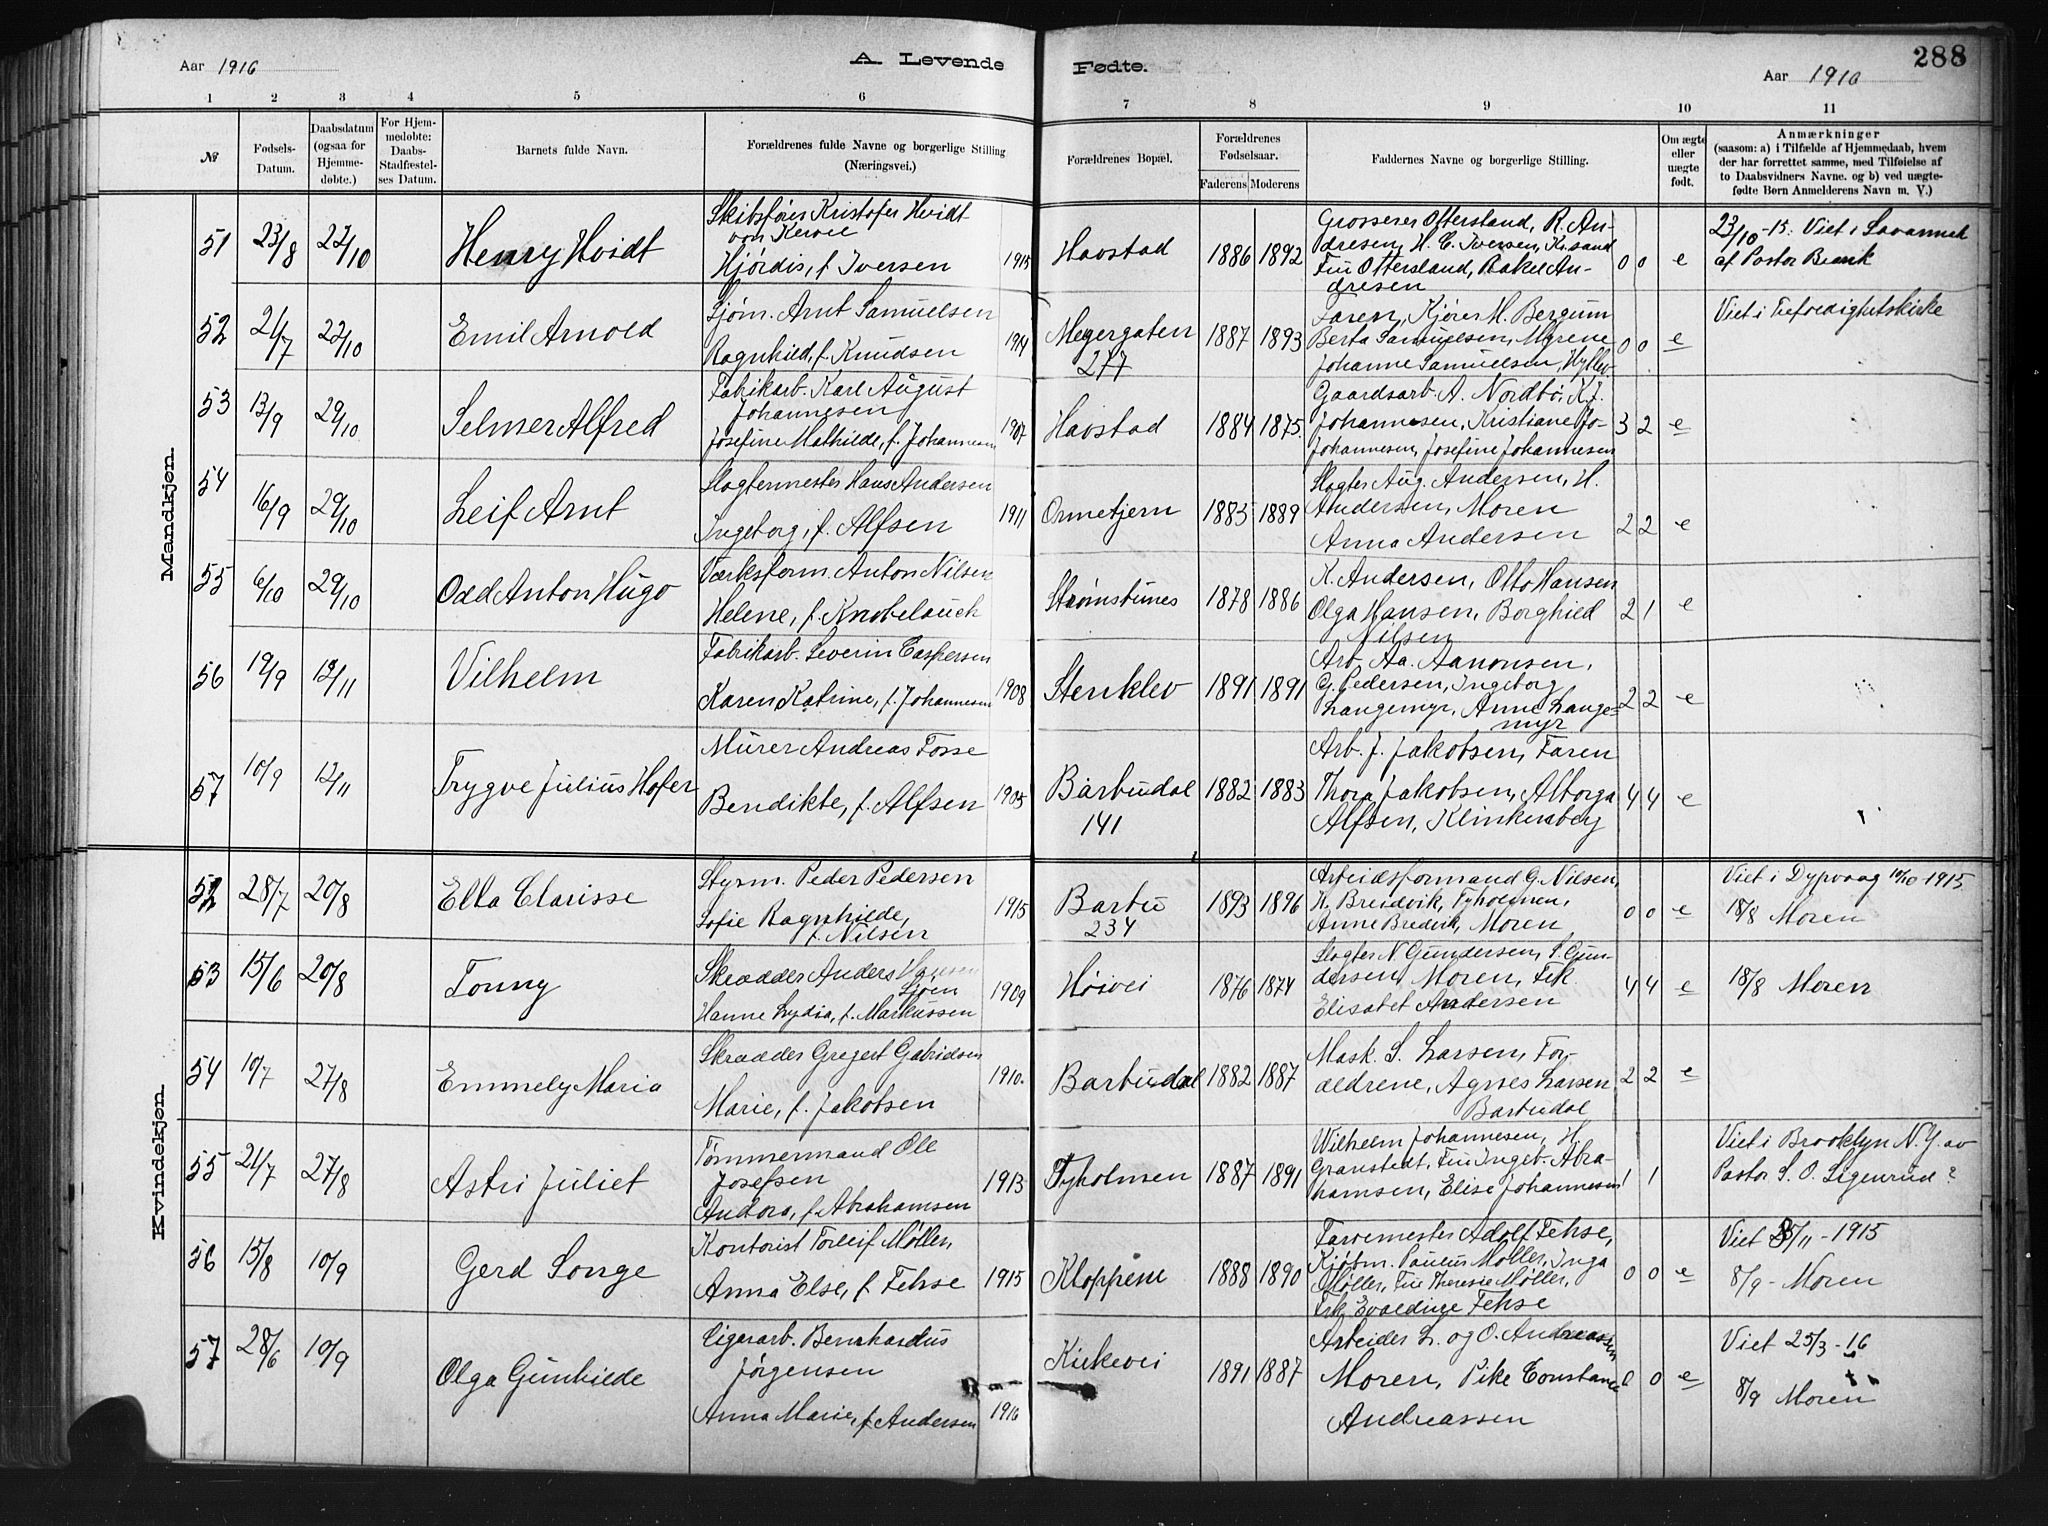 Aar 1916
A. Levende
Fødte.
288
Aar 1916
1 2 3 4 5 6 7 8 9 10 11
№
Fødsels-
Datum.
Daabsdatum
(ogsaa for
Hjemme-
døbte.)
For Hjem-
medøbte:
Daabs-
Stadfæstel-
ses Datum.
Barnets fulde Navn.
Forældrenes fulde Navne og borgerlige Stilling
(Næringsvei.)
Forældrenes Bopæl.
Forældrenes
Fødselsaar.
Faderens Moderens
Faddernes Navne og borgerlige Stilling.
Om ægte
eller
uægte
født.
Anmærkninger
(saasom: a) i Tilfælde af Hjemmedaab, hvem
der har forrettet samme, med Tilføielse af
to Daabsvidners Navne. og b) ved uægte-
fødte Børn Anmelderens Navn m. V.)
Mandkjøn.
51 23/8 22/10 Henry Hvidt
Skibsfører Kristofer Hvidt
Hjørdis, f. Iversen 1915
Havstad 1886 1892
Grosserer Ottersland, R. An-
dresen, H. C. Iversen, Kr.sand
Fru Ottersland, Rakel An-
dresen
0 0 e
23/10-15. Viet i Savannah
af Pastor
52 21/7 22/10 Emil Arnold
Sjøm. Arnt Samuelsen
Ragnhild, f. Knudsen 1914
Meyergaten 1887 1893
277
Faren, Kjører M. Bergum
Berta Samuelsen, Myrene
Johanne Samuelsen,
0 0 e
Viet i Trefoldighetskirke
53 13/9 29/10 Selmer Alfred
Fabrikarb. Karl August
Johannesen
Josefine Mathilde, f. Johannesen 1907
Havstad 1884 1875
Gaardsarb. A. Nordbø, K. J.
Johannesen, Kristiane Jo-
Johannesen, Josefine Johannesen
3 2 e
54 16/9 29/10 Leif Arnt
Slagtermester Hans Andersen
Ingeborg, f. Alfsen 1911
Ormetjern 1883 1889
Slagter Aug. Andersen, H.
Andersen, Moren
Anna Andersen
2 2 e
55 6/10 29/10 Odd Anton Hugo
Værksform. Anton Nilsen
Helene, f. Knobelauch
Strømsbunes 1878 1886
K. Andersen, Otto Hansen
Olga Hansen, Borghild
Nilsen
2 1 e
56 19/9 12/11 Vilhelm
Fabrikarb. Severin Caspersen
Karen Katrine, f. Johannesen 1908
Stenklev 1891 1891
Arb. Aa. Aanonsen,
G. Pedersen, Ingeborg
Langemyr, Anne Lange-
myr
2 2 e
57 10/9 12/11 Trygve Julius Hofer
Murer Andreas Fosse
Bendikte, f. Alfsen 1905
Barbudal 1882 1883
141
Arb. J. Jakobsen, Faren
Thora Jakobsen, Alborga
Alfsen, Klinkenberg
4 4 e
Kvindekjøn.
52 28/7 20/8 Ella Clarisse
Styrm. Peder Pedersen
Sofie Ragnhilde,
f. Nilsen 1915
Barbu 1893 1896
234
Arbeidsformand G. Nilsen,
K. Breidvik, Tyholmen,
Anne Bredvik, Moren
0 0 e
Viet i Dypvaag 10/10 1915
18/8 Moren
53 15/6 20/8 Tonny
Skrædder Anders Hansen
Sjøen
Hanne Lydia, f. Markussen 1909
Høivei 1876 1874
Slagter N. Gundersen, S. Gun-
dersen, Moren, Frk.
Elisabet Andersen
4 4 e
18/8 Moren
54 10/7 27/8 Emmely Maria
Skrædder Gregert Gabrielsen
Marie, f. Jakobsen 1910.
Barbudal 1882 1887
Mask. S. Larsen, For-
ældrene, Agnes Larsen
Barbudal
2 2 e
55 21/7 27/8 Astri Juliet
Tømmermand Ole
Josefsen
Andora, f. Abrahamsen 1913
Tyholmen 1887 1891
Wilhelm Johannesen, H.
Granstedt, Fru Ingeb. Abra-
hamsen, Elise Johannesen
1 1
Viet i Brooklyn N.Y. av
Pastor S. O. Sigenrud?
56 15/8 10/9 Gerd Songe
Kontorist Torleif Møller,
Anna Else, f. Fehse 1915
Kloppene 1888 1890
Farvemester Adolf Fehse,
Kjøbm. Paulus Møller, Inga
Møller, Fru Theresie Møller,
Frk. Evaldine Fehse
0 0 e
Viet 25/11-1915
8/9 - Moren
57 28/6 10/9 Olga Gunhilde
Cigararb. Bernhardus
Jørgensen
Anna Marie, f. Andersen 1916
Kirkevei 1891 1887
Arbeider L. og O. Andreassen
Moren, Pike Constance
Andreassen
0 0 e
Viet 25/3-16
8/9 Moren